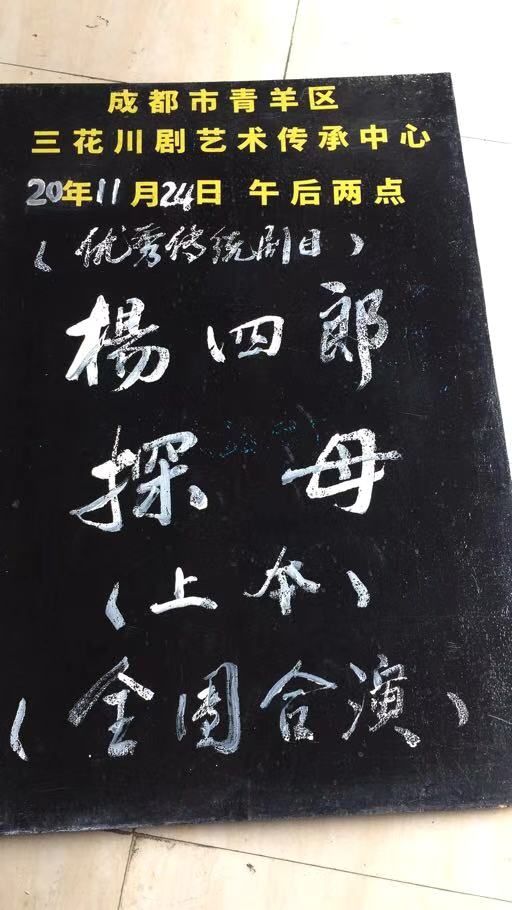 成都市青羊区
三花川剧艺术传承中心
20年11月24日 午后两点
(优秀传统剧目)
楊四郎
探母
(上本)
(全團合演)